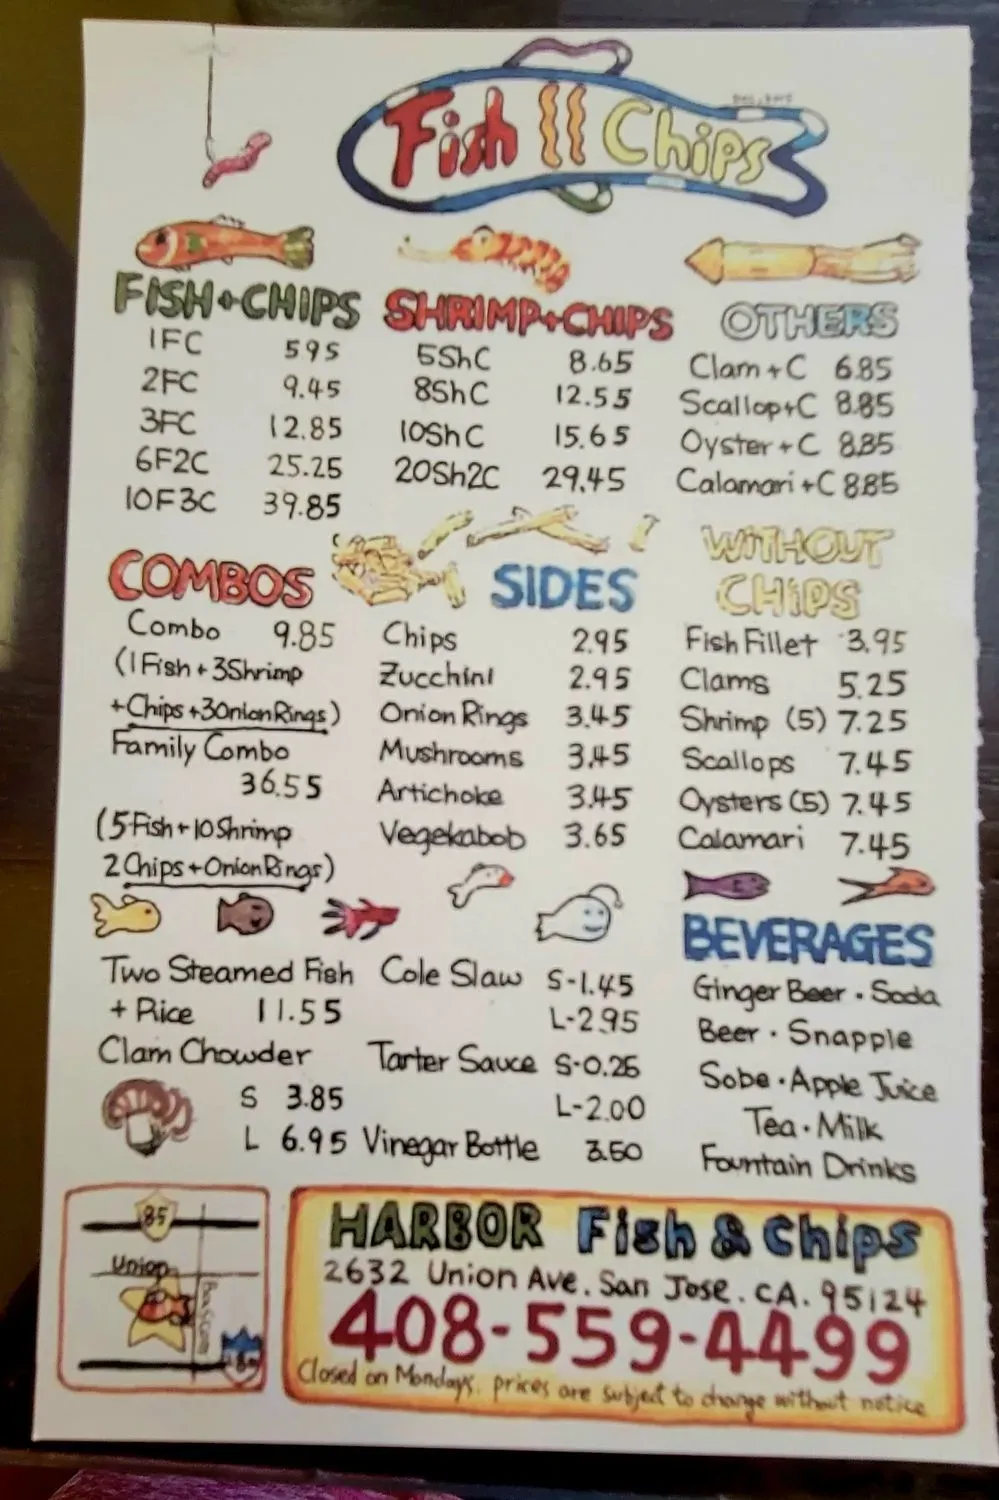 Fish Chips
FISH+CHIPS
1FC 595
2FC 9.45
3FC 12.85
6F2C 25.25
10F3C 39.85
SHRIMP+CHIPS
5ShC 8.65
8ShC 12.55
10ShC 15.65
20Sh2C 29.45
OTHERS
Clam+C 6.85
Scallop+C 8.85
Oyster+C 8.85
Calamari+C 8.85
COMBOS
Combo 9.85
(1Fish+3Shrimp
+Chips+3OnionRings)
Family Combo
36.55
(5Fish+10Shrimp
2Chips+OnionRings)
SIDES
Chips 2.95
Zucchini 2.95
Onion Rings 3.45
Mushrooms 3.45
Artichoke 3.45
Vegekabob 3.65
WITHOUT
CHIPS
Fish Fillet 3.95
Clams 5.25
Shrimp (5) 7.25
Scallops 7.45
Oysters (5) 7.45
Calamari 7.45
Two Steamed Fish
+ Rice 11.55
Clam Chowder
S 3.85
L 6.95
Cole Slaw S-1.45
L-2.95
Tarter Sauce S-0.25
L-2.00
Vinegar Bottle 3.50
BEVERAGES
Ginger Beer · Soda
Beer · Snapple
Sobe · Apple Juice
Tea · Milk
Fountain Drinks
85
Union
HARBOR Fish & Chips
2632 Union Ave. San Jose. CA. 95124
408-559-4499
Closed on Mondays. prices are subject to change without notice